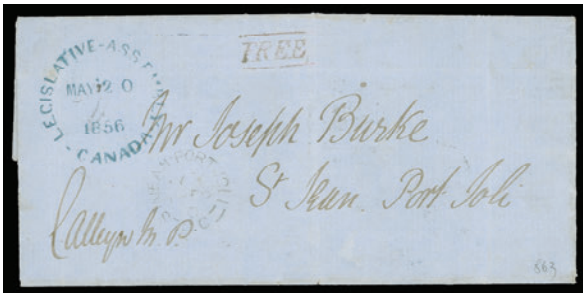 FREE
LEGISLATIVE-ASSEMBLY
MAY 20
1856
CANADA
Mr Joseph Burke
St Jean Port Joli
C Alleyn M P.
563